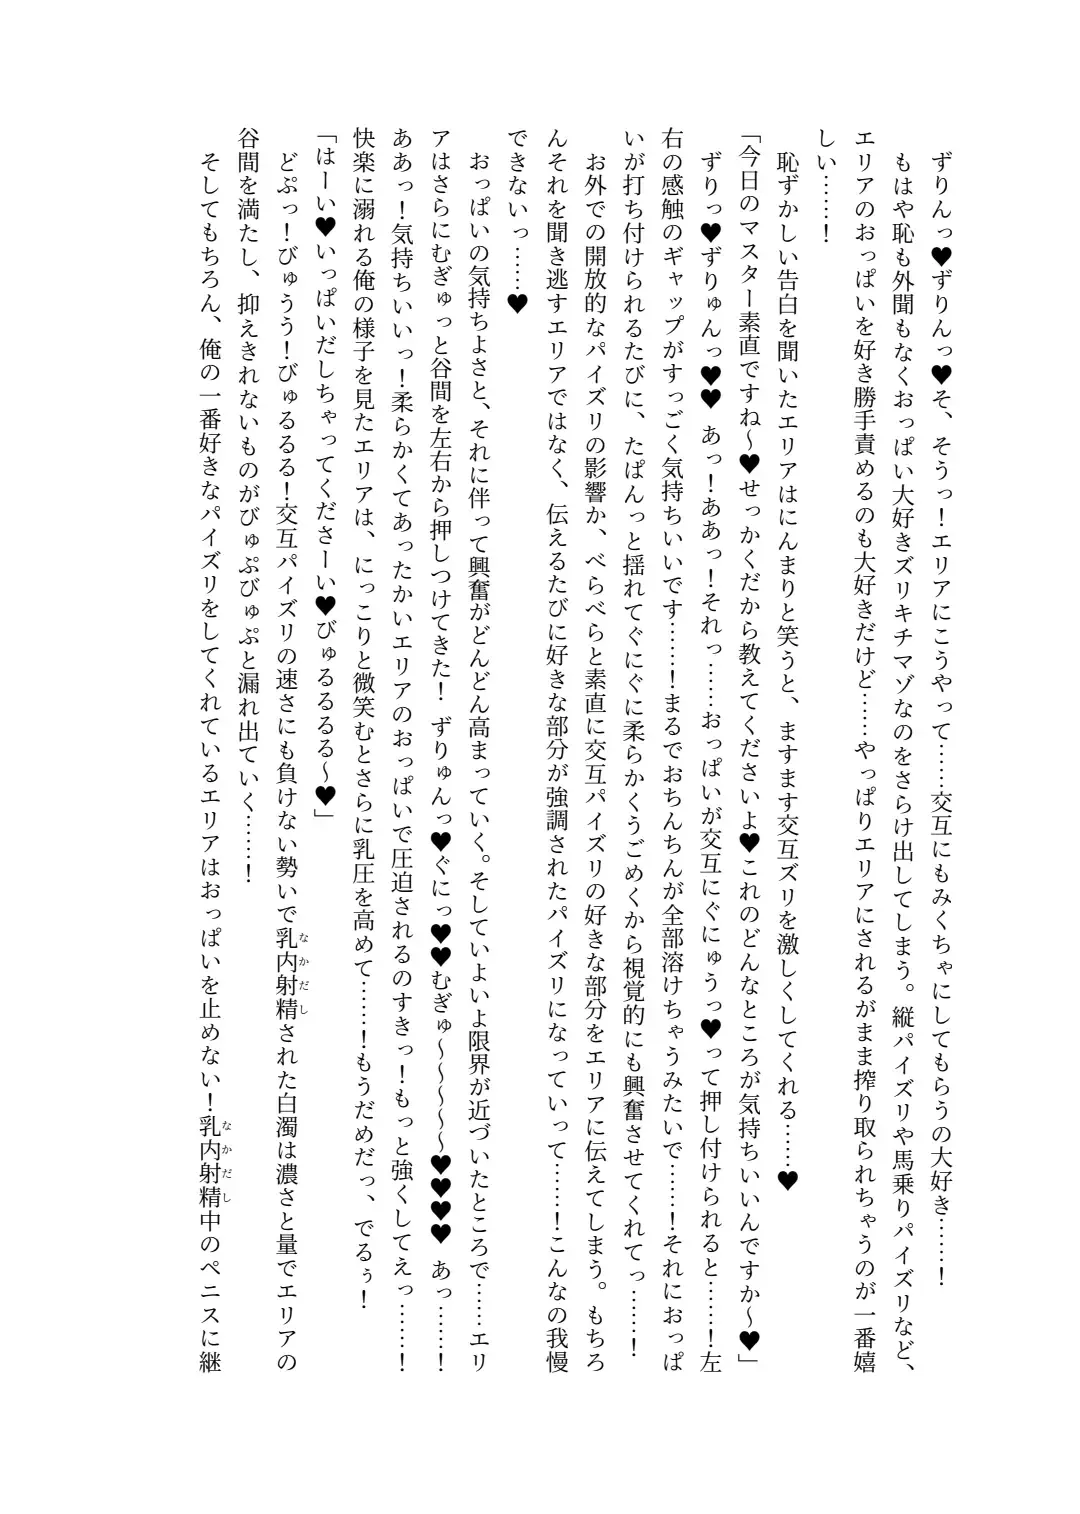 ずりんっ♥ずりんっ♥そ、そうっ！エリアにこうやって……交互にもみくちゃにしてもらうの大好き……！
もはや恥も外聞もなくおっぱい大好きズリキチマゾなのをさらけ出してしまう。縦パイズリや馬乗りパイズリなど、
エリアのおっぱいを好き勝手責めるのも大好きだけど……やっぱりエリアにされるがまま搾り取られちゃうのが一番嬉
しい……！
恥ずかしい告白を聞いたエリアはにんまりと笑うと、ますます交互ズリを激しくしてくれる……♥
「今日のマスター素直ですね～♥せっかくだから教えてくださいよ♥これのどんなところが気持ちいいんですか～♥」
ずりっ♥ずりゅんっ♥♥　あっ！ああっ！それっ……おっぱいが交互にぐにゅうっ♥って押し付けられると……！左
右の感触のギャップがすっごく気持ちいいです……！まるでおちんちんが全部溶けちゃうみたいで……！それにおっぱ
いが打ち付けられるたびに、たぱんっと揺れてぐにぐに柔らかくうごめくから視覚的にも興奮させてくれてっ……！
お外での開放的なパイズリの影響か、べらべらと素直に交互パイズリの好きな部分をエリアに伝えてしまう。もちろ
んそれを聞き逃すエリアではなく、伝えるたびに好きな部分が強調されたパイズリになっていって……！こんなの我慢
できないっ……♥
おっぱいの気持ちよさと、それに伴って興奮がどんどん高まっていく。そしていよいよ限界が近づいたところで……エリ
アはさらにむぎゅっと谷間を左右から押しつけてきた！　ずりゅんっ♥ぐにっ♥♥むぎゅ～～～～♥♥♥♥　あっ……！
ああっ！気持ちいいっ！柔らかくてあったかいエリアのおっぱいで圧迫されるのすきっ！もっと強くしてえっ……！
快楽に溺れる俺の様子を見たエリアは、にっこりと微笑むとさらに乳圧を高めて……！もうだめだっ、でるぅ！
「はーい♥いっぱいだしちゃってくださーい♥びゅるるるる～♥」
どぷっ！びゅうう！びゅるるる！交互パイズリの速さにも負けない勢いで乳内射精なかだしされた白濁は濃さと量でエリアの
谷間を満たし、抑えきれないものがびゅぷびゅぷと漏れ出ていく……！
そしてもちろん、俺の一番好きなパイズリをしてくれているエリアはおっぱいを止めない！乳内射精なかだし中のペニスに継